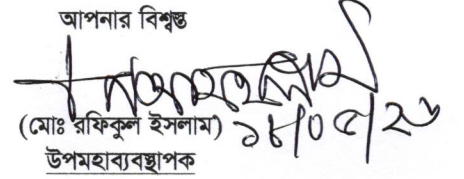 আপনার বিশ্বস্ত
(মোঃ রফিকুল ইসলাম) ১৮/০৫/২৬
উপমহাব্যবস্থাপক